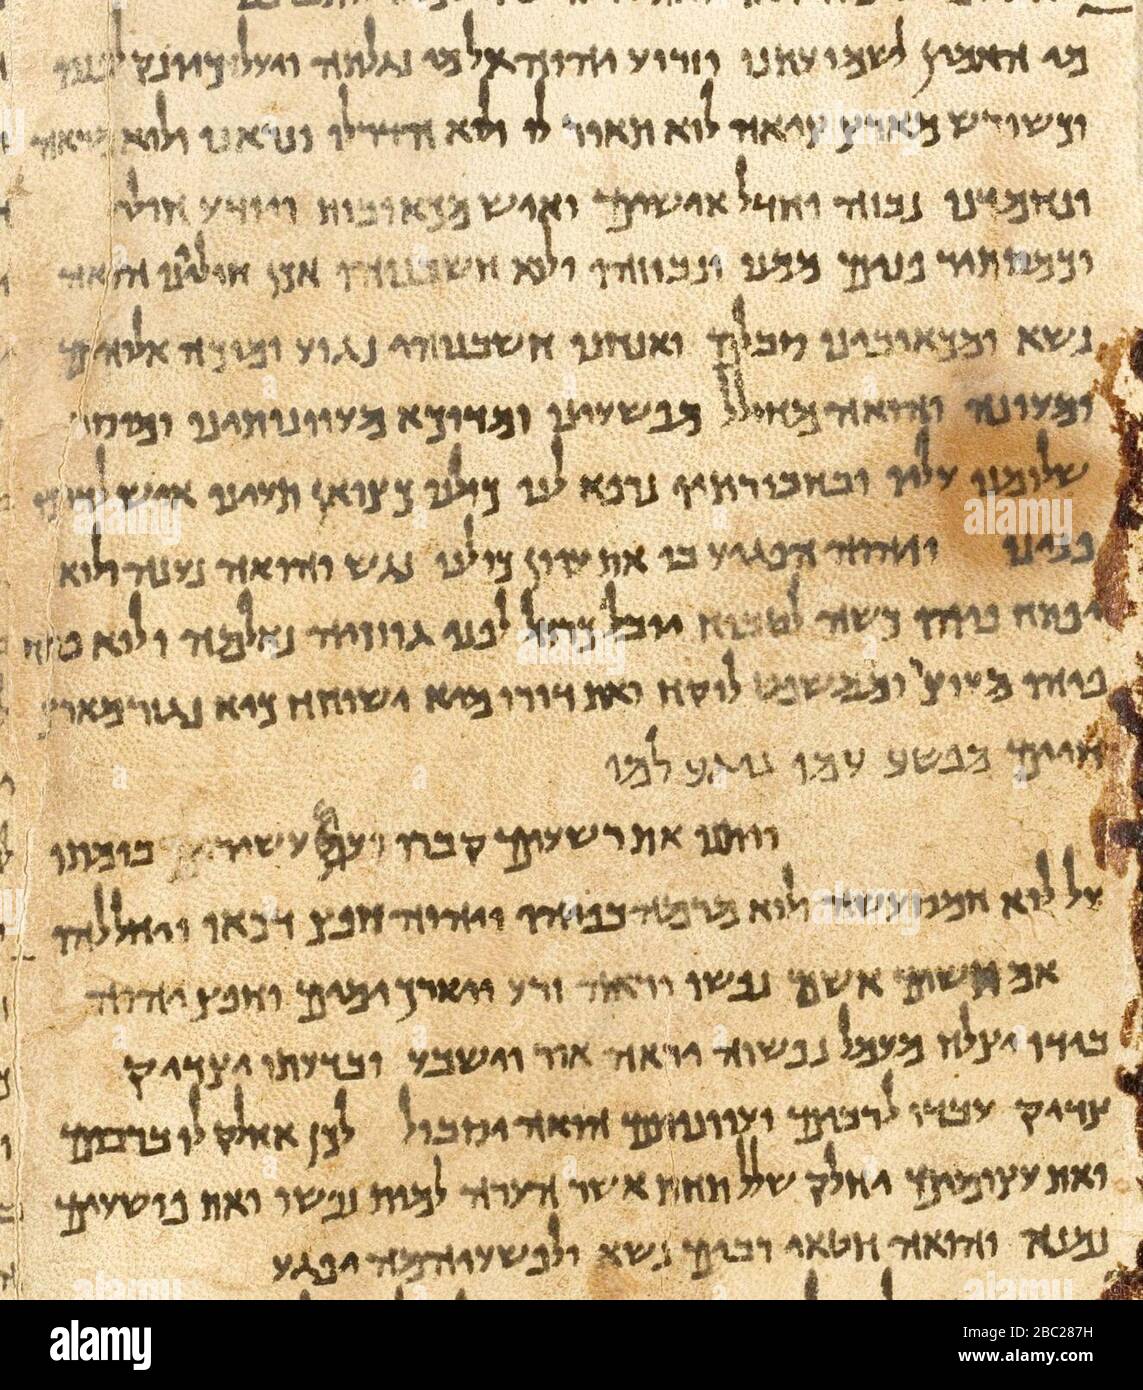 מי האמין לשמועתנו וזרוע יהוה אל מי נגלתה ויעל כיונק לפניו
וכשורש מארץ ציאה לוא תואר לו ולוא הדר לו ונראנו ולוא מראה
ונחמדנו נבזה וחדל אישים ואיש מכאובות ויודע חולי
וכמסתר פנים ממנו ונבוזהו ולוא חשבנוהו אכן חוליינו הואה
נשא ומכאובינו סבלם ואנחנו חשבנוהו נגוע ומוכה אלוהים
ומעונה והואה מחולל מפשעינו ומדוכא מעוונותינו ומוסר
שלומנו עליו ובחבורתיו נרפא לנו כולנו כצואן תעינו איש לדרכו
פנינו ויהוה הפגיע בו את עוון כולנו נגש והואה נענה ולוא
יפתח פיהו כשה לטבוח יובל כרחל לפני גוזזיה נאלמה ולוא פתח
פיהו מעוצר וממשפט לוקח ואת דורו מיא ישוחח כיא נגזר מארץ
חיים מפשע עמו נוגע למו
ויתנו את רשעים קברו ועם עשיר בומתו
על לוא חמס עשה ולוא מרמה בפיהו ויהוה חפץ דכאו ויחללהו
אם תשים אשם נפשו יראה זרע ויארך ימים וחפץ יהוה
בידו יצלח מעמל נפשוה יראה אור וישבע ובדעתו יצדיק
צדיק עבדו לרבים ועוונותם הואה יסבול לכן אחלק לו ברבים
ואת עצומים יחלק שלל תחת אשר הערה למות נפשו ואת פושעים
נמנא והואה חטאי רבים נשא ולפשעיהמה יפגע
alamy
Image ID: 2BC287H
www.alamy.com